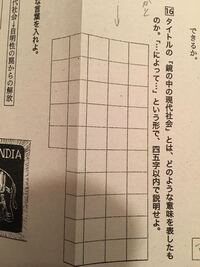 できるか。
16 タイトルの「鏡の中の現代社会」とは、どのような意味を表したも
のか。「…によって…」という形で、四五字以内で説明せよ。
な言葉を入れよ。
代社会→自明性の罠からの解放
NDIA